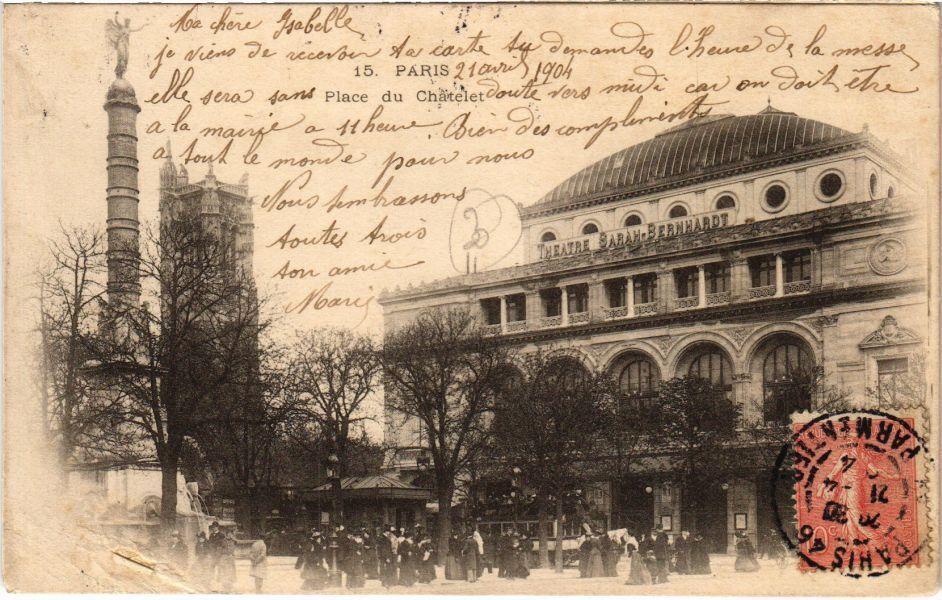 Ma chère Isabelle
je viens de recevoir ta carte tu demandes l'heure de la messe
15. PARIS 21 avril 1904
elle sera sans doute vers midi car on doit être
Place du Châtelet
a la mairie a 11 heure. Bien des compliments
a tout le monde pour nous
Nous t'embrassons
toutes trois
ton amie
Marie
THÉATRE SARAH-BERNHARDT
PARIS 46
R. PARMENTIER
21 -4 04